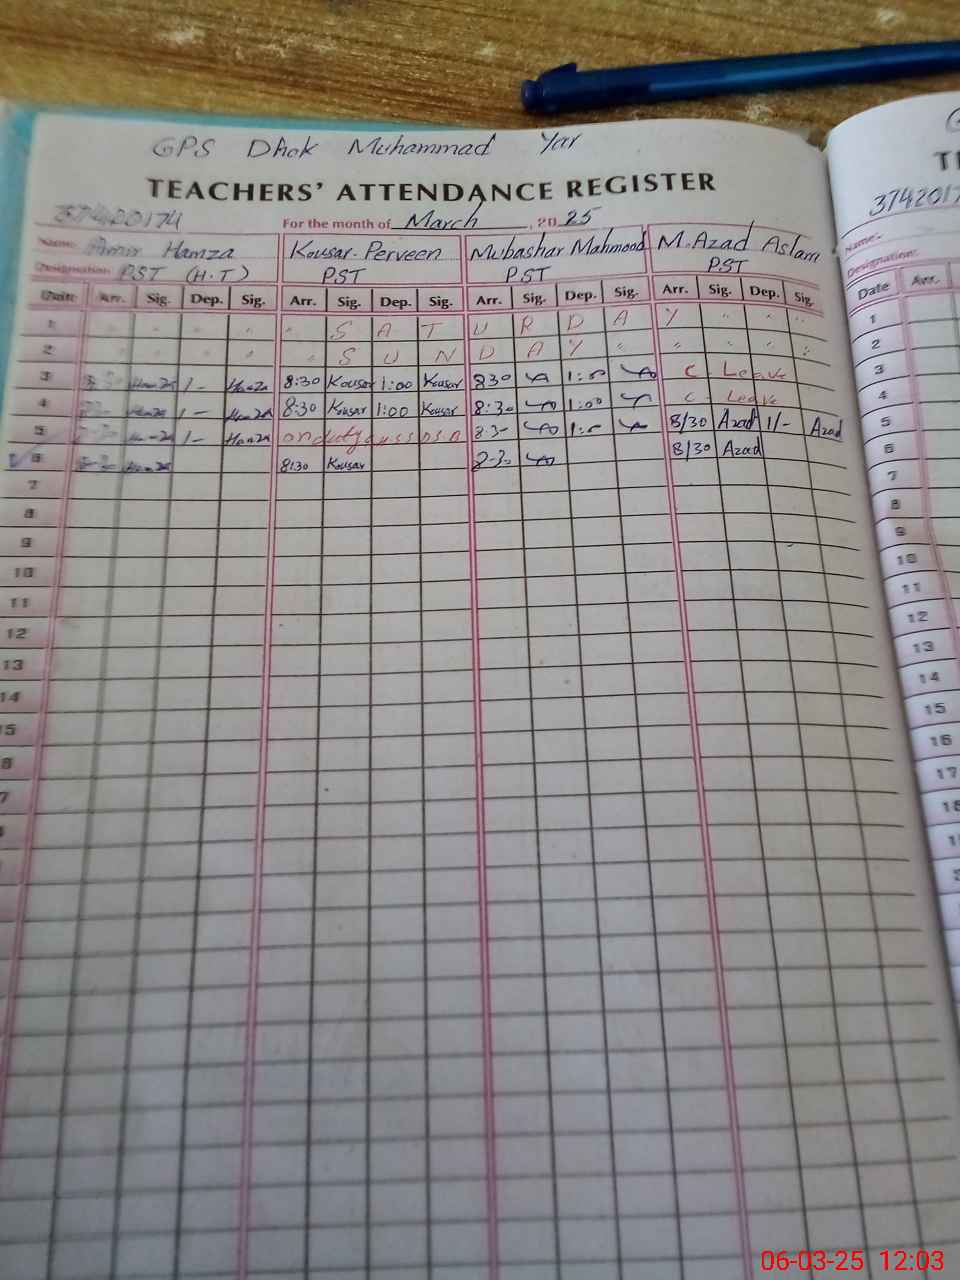 GPS Dhok Muhammad Yar
TEACHERS' ATTENDANCE REGISTER
37420174 For the month of March, 2025
Name: Amir Hamza Kousar Perveen Mubashar Mahmood M. Azad Aslam
Designation PST (H.T) PST PST PST
Date Arr. Sig. Dep. Sig. Arr. Sig. Dep. Sig. Arr. Sig. Dep. Sig. Arr. Sig. Dep. Sig.
1 " " " " " S A T U R D A Y " " "
2 " " " " " S U N D A Y " " " " "
3 Hamza 1- Hamza 8:30 Kousar 1:00 Kousar 830 1:00 C. Leave
4 Hamza 1- Hamza 8:30 Kousar 1:00 Kousar 8:30 1:00 C. Leave
5 Hamza 1- Hamza on duty 8:3- 1:0 8/30 Azad 1/- Azad
6 Hamza 8:30 Kousar 8-30 8/30 Azad
7
8
9
10
11
12
13
14
15
3742017
Name:-
Designation:
Date Arr.
1
2
3
4
5
6
7
8
9
10
11
12
13
14
15
16
17
18
06-03-25 12:03